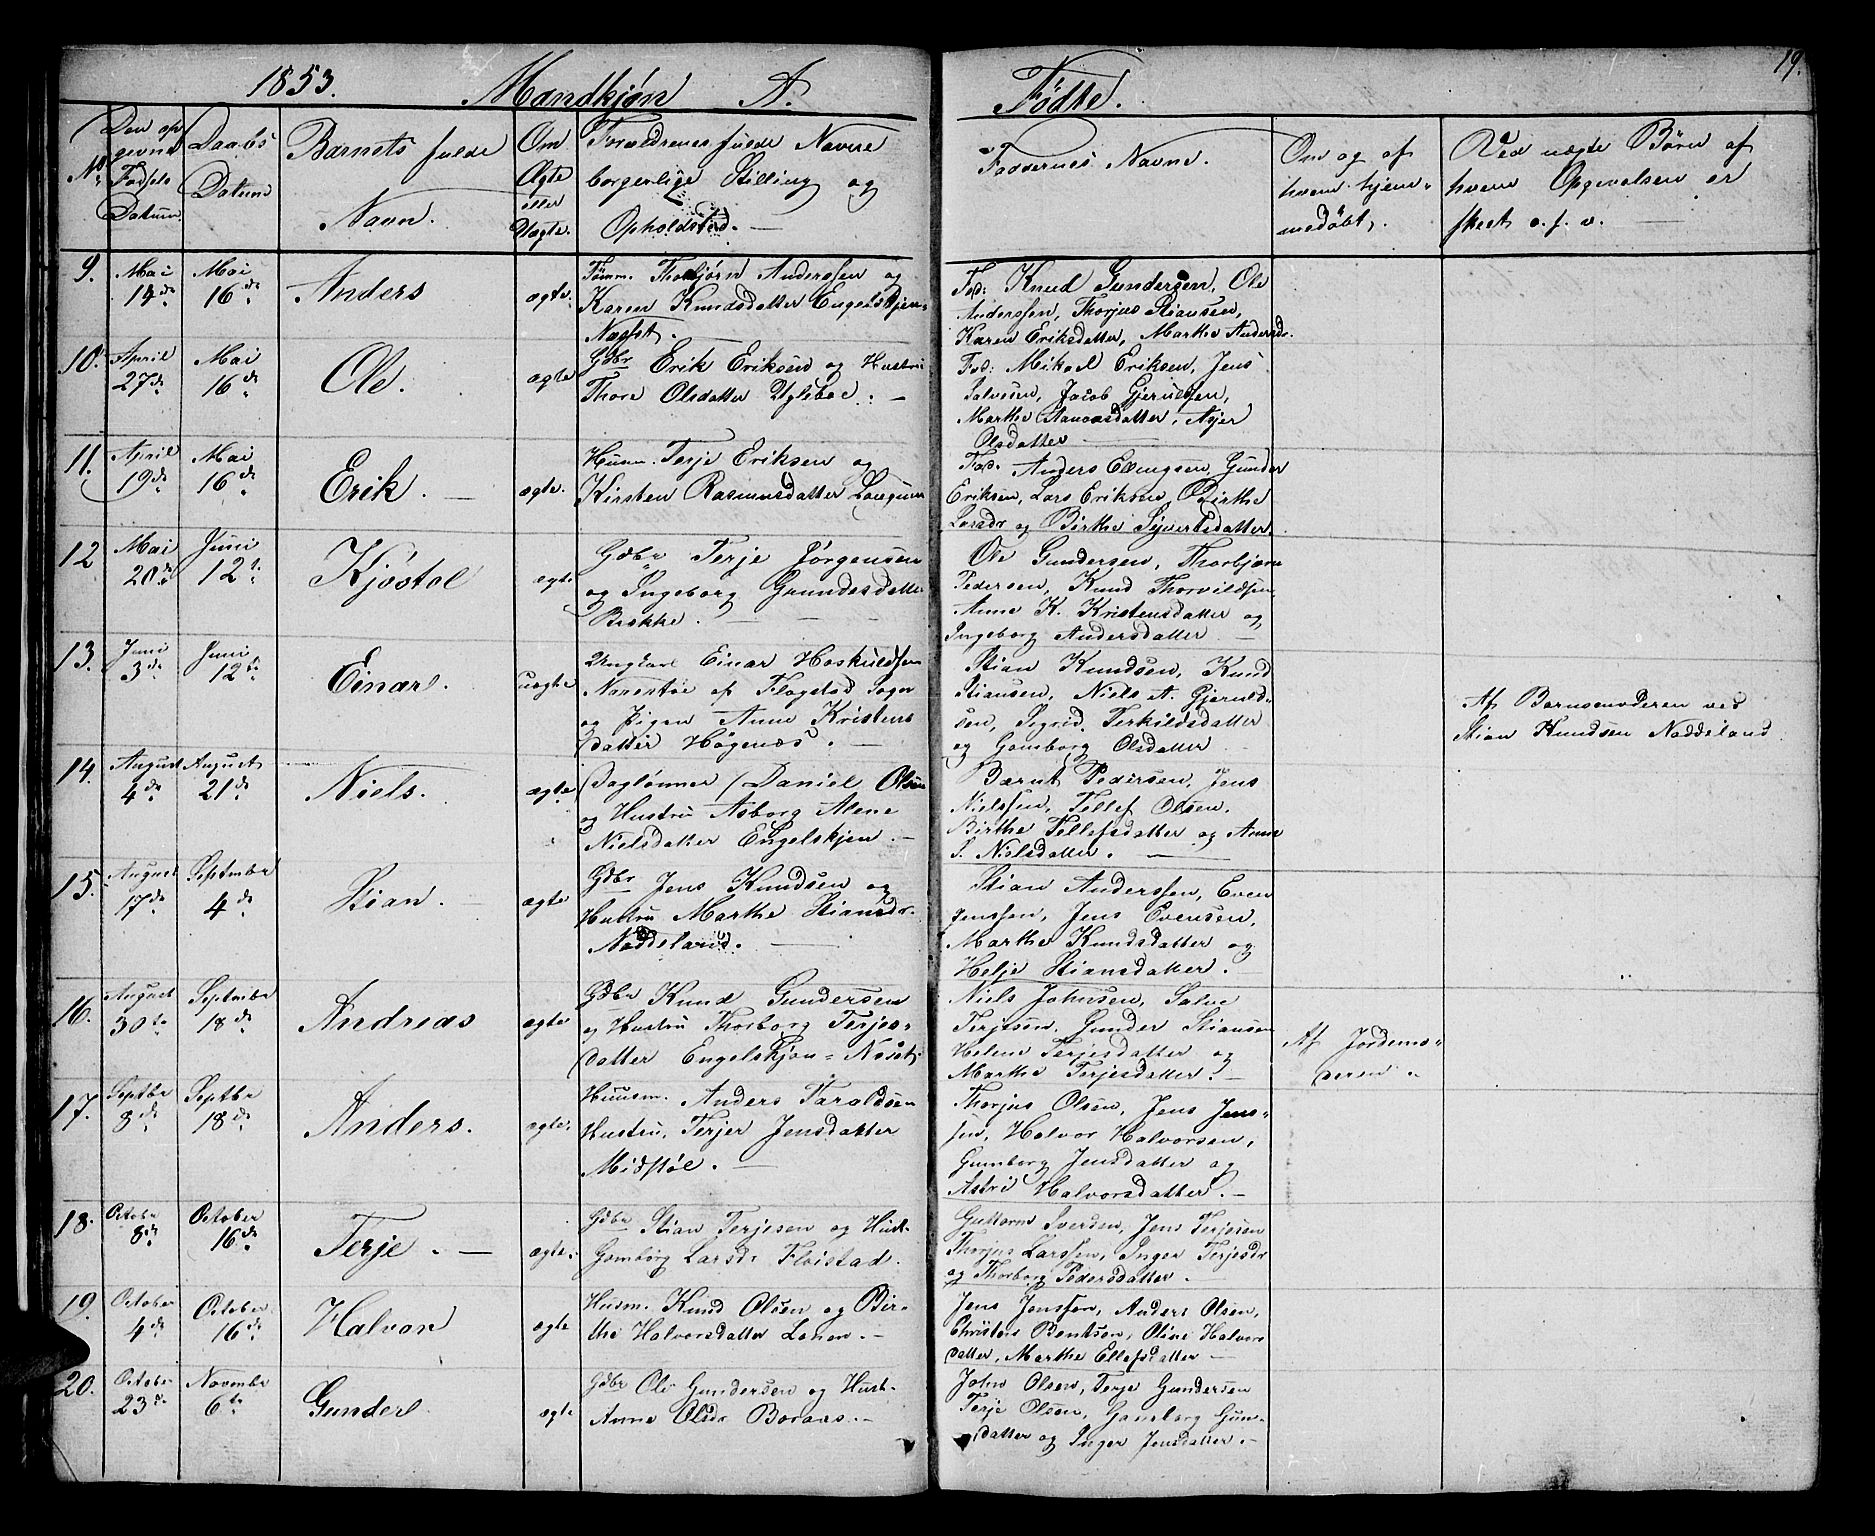 1853. Mandkjøn A. Fødte. 19.
No. Den opgevne Fødsels Datum. Daabs Datum Barnets fulde Navn. Om Ægte eller Uægte. Forældrenes fulde Navne borgerlige Stilling og Opholdsted. Faddernes Navne. Om og af hvem hjemmedøbt. Ved uægte Børn af hvem Opgevelsen er skeet o. s. v.
9. Mai 14de Mai 16de Anders ægte.
Tømm. Thorbjørn Anderssen og
Karen Knudsdatter Engelskjøn-
Næsset.
Fad: Knud Gundersen, Ole
Anderssen, Thorjus Stiansen,
Karen Eriksdatter, Marthe Andersdr.
10. April 27de Mai 16de Ole. ægte
Gdbr Erik Eriksen og Hustru
Thore Olsdatter Ugleboe. -
Fad: Mikael Eriksen, Jens
Salvesen, Jacob Gjeruldsen,
Marthe Aanonsdatter,
Olsdatter
11. April 19de Mai 16de Erik. ægte.
Huusm. Terje Eriksen og
Kirsten Rasmusdatter Langum
Fad. Anders Ellingsen, Gunder
Eriksen, Lars Eriksen, Birthe
Larsdr og Birthe Sjvertsdatter.
12 Mai 20de Juni 12te Kjøstol ægte
Gdbr Terje Jørgensen
og Ingeborg Gundersdatter
Bække.
Ole Gundersen, Thorbjørn
Pedersen, Knud Thorvildsen
Anne K. Kristensdatter og
Ingeborg Andersdatter
13. Juni 3de Juni 12te Einar. uægte
Ungkarl Einar Hoskuldsen
Narestøe af Flagstad Sogn
og Pigen Anne Kristens
datter Høgenæs.
Stian Knudsen, Knud
Stiansen, Niels A. Gjeruld-
sen, Sigrid Terkildsdatter
og Gonsborg Olsdatter
Af Barnemoderen ved
Stian Knudsen Naddeland
14. August 4de August 21de Niels. ægte
Daglønner Daniel Olsen
og Hustru Asborg Alene
Nielsdatter Engelskjøn. -
Bærnt Pedersen, Jens
Nielssen, Tellef Olsen.
Birthe Tellefsdatter og Anne
S. Nielsdatter.
15. August 17de Septmbr 4de Stian. ægte
Gdbr Jens Knudsen og
Hustru Marthe Stiansdr.
Naddeland.
Stian Anderssen, Even
Jenssen, Jens Evensen,
Marthe Knudsdatter og
Helje Stiansdatter.
16. August 30te Septmbr 18de Andreas ægte
Gdbr Knud Gundersen
og Hustru Thorborg Terjes-
datter Engelskjøn-Næset.
Niels Johnsen, Salve
Terjesen, Gunder Stiansen
Helene Terjesdatter og
Marthe Terjesdatter. -
Af Jordemo-
deren.
17. Septbr 8de Septbr 18de Anders. ægte.
Huusm. Anders Taraldsen
Hustru, Terjer Jensdatter
Midstøl.
Thorjus Olsen, Jens Jens-
sen, Halvor Halvorsen,
Gumborg Jensdatter og
Astri Halvorsdatter. -
18. Octobr 8de October 16de Terje. - ægte.
Gdbr Stian Terjesen og Hust.
Gomborg Larsdr Fløistad.
Guttorm Iversen, Jens Terjesen
Thorjus Larssen, Inger Terjesdr
og Thorborg Pedersdatter. -
19. October 4de October 16de Halvor ægte
Husm. Knud Olsen og Bir-
the Halvorsdatter Lonen. -
Jens Jenssen, Anders Olsen,
Christen Bentsen, Oline Halvors
datter, Marthe Ellefsdatter -
20. October 23de Novembr 6te Gunder. ægte
Gdbr Ole Gundersen og Hust.
Anne Olsdr Boraas. -
John Olsen, Terje Gundersen
Terje Olsen, Gonsborg Gun-
datter og Inger Jensdatter. -